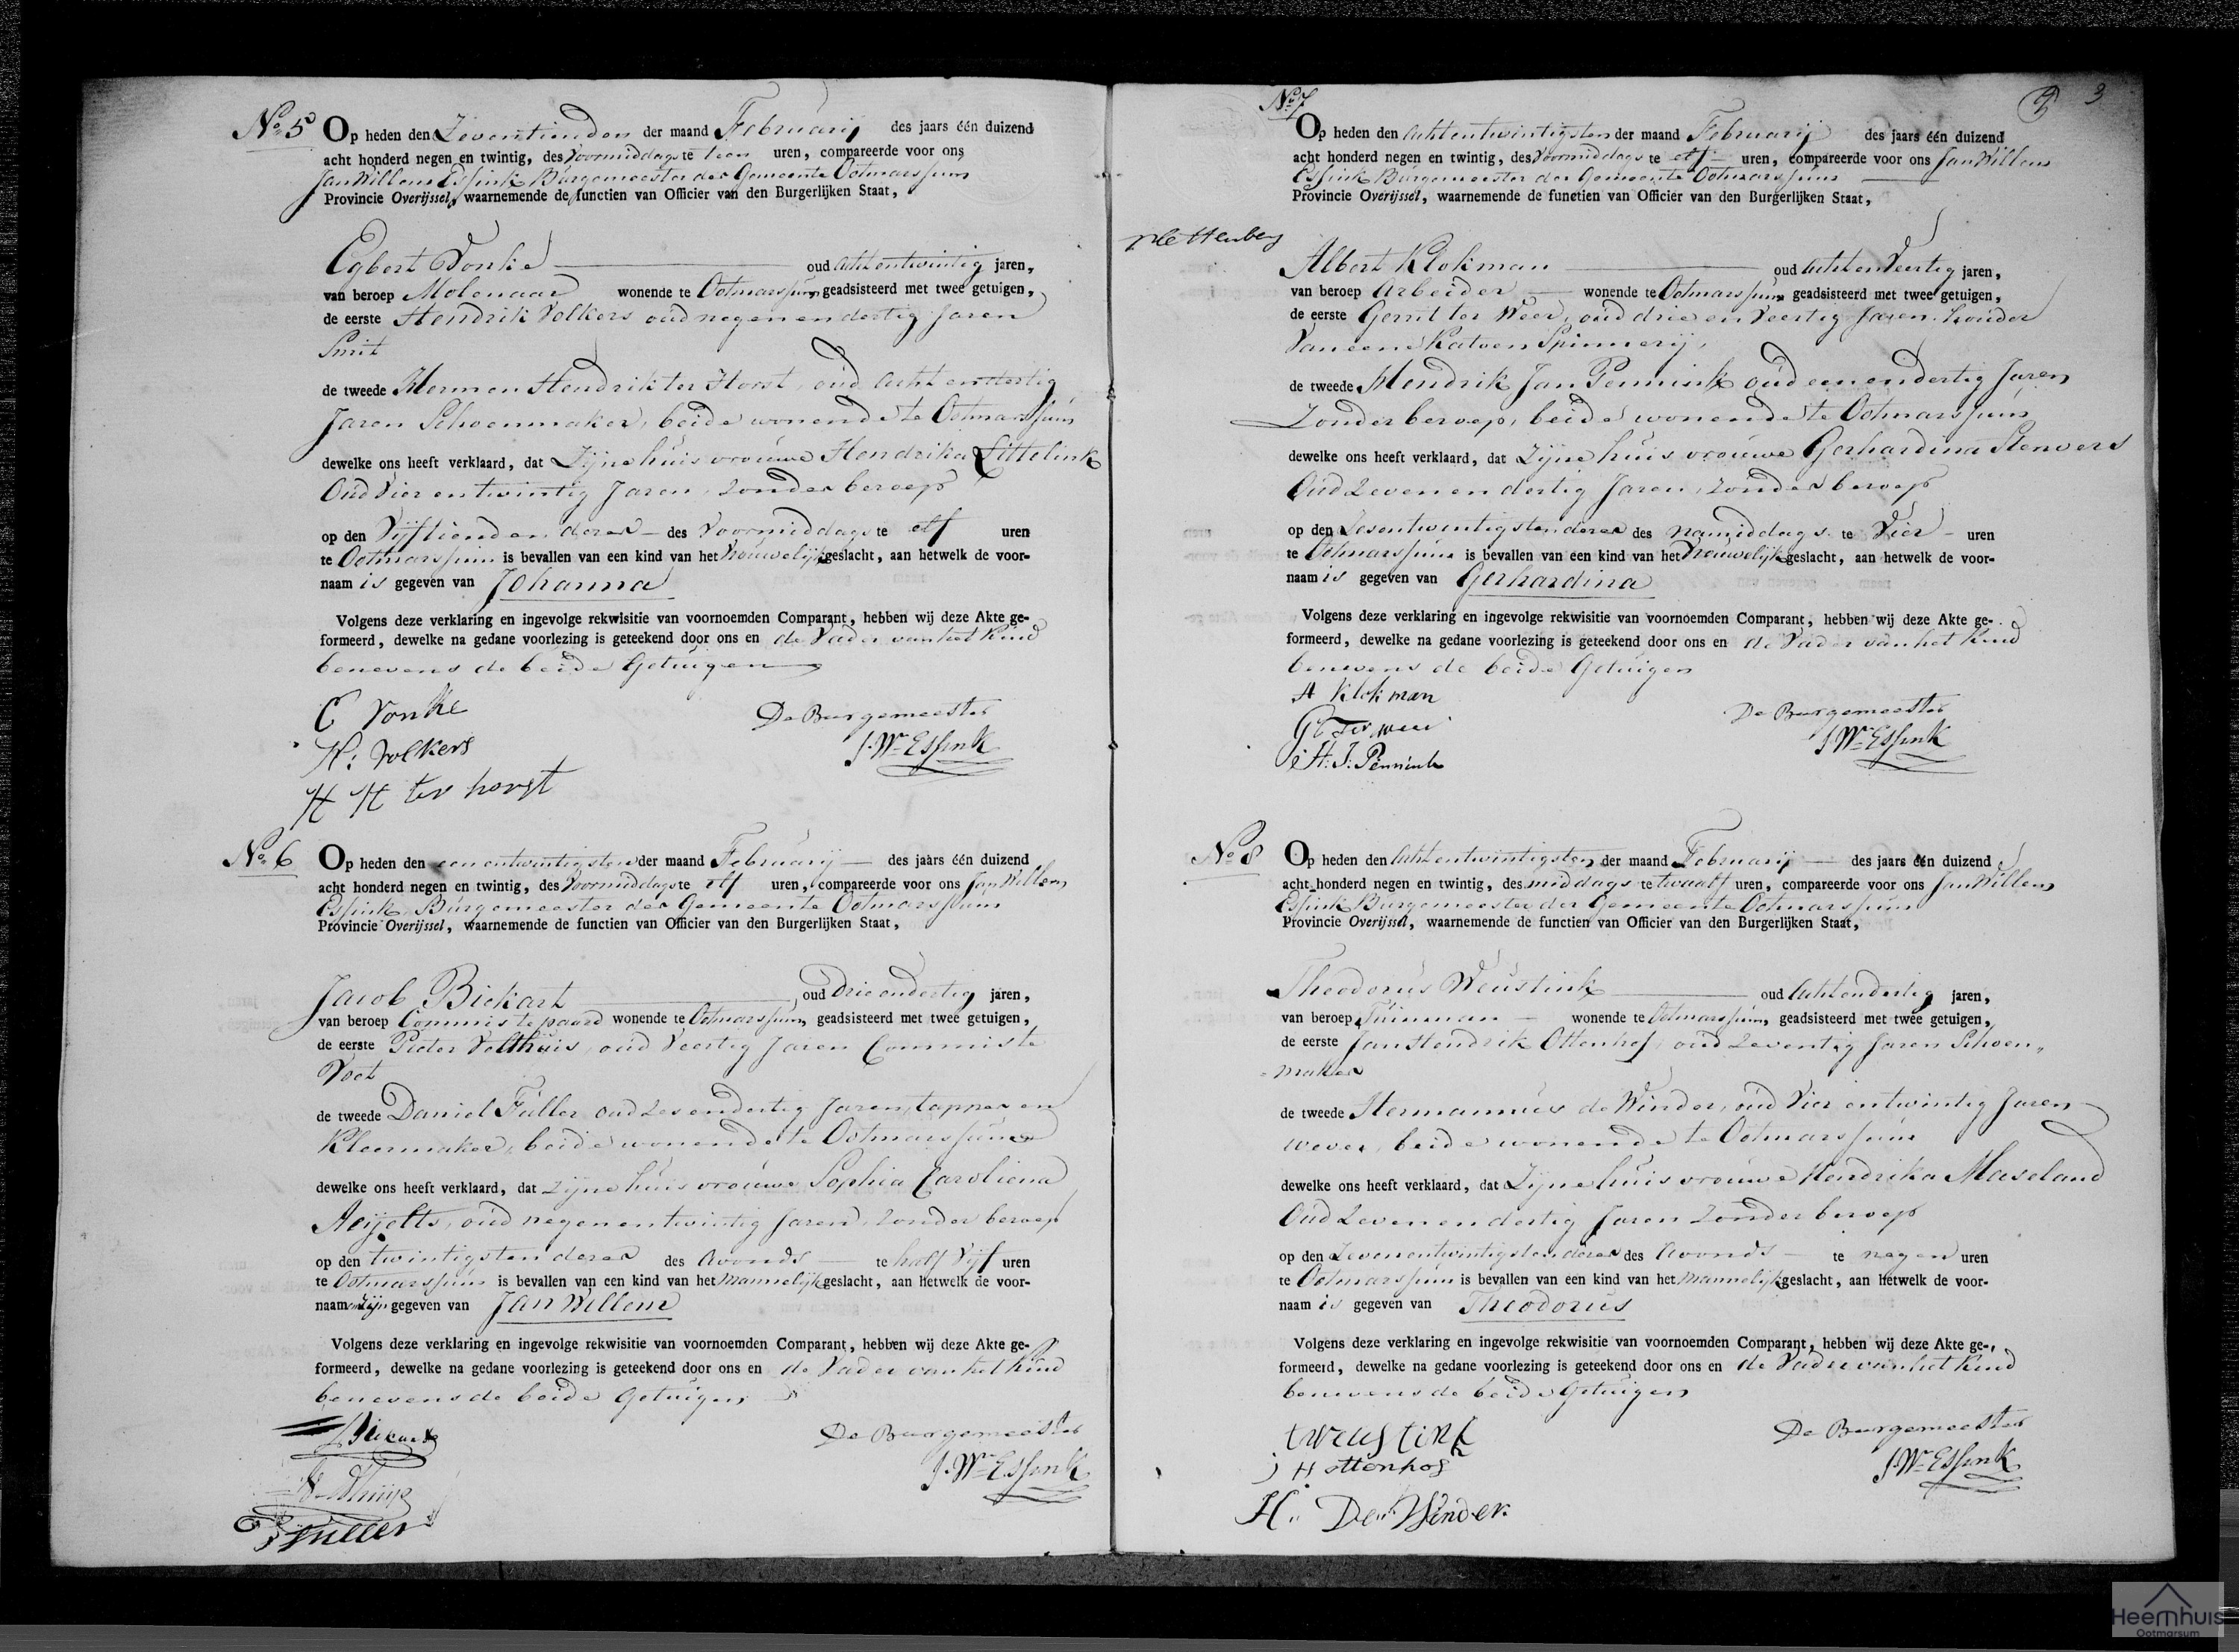 No 5 Op heden den Zeventienden der maand Februarij des jaars één duizend
acht honderd negen en twintig, des Voormiddags te tien uren, compareerde voor ons
Jan Willem Essink Burgemeester der Gemeente Ootmarssum
Provincie Overijssel, waarnemende de functien van Officier van den Burgerlijken Staat,
Egbert Vonke oud achtentwintig jaren,
van beroep Molenaar wonende te Ootmarssum geadsisteerd met twee getuigen,
de eerste Hendrik Volkers oud negen en dertig Jaren
Smit
de tweede Hermen Hendrik ter Horst, oud acht en dertig
Jaren Schoenmaker, beide wonende te Ootmarssum
dewelke ons heeft verklaard, dat Zijne huisvrouwe Hendrika Littelink
Oud Vier en twintig Jaren, zonder beroep
op den Vijftienden dezer des Voormiddags te elf uren
te Ootmarssum is bevallen van een kind van het Vrouwelijk geslacht, aan hetwelk de voor-
naam is gegeven van Johanna
Volgens deze verklaring en ingevolge rekwisitie van voornoemden Comparant, hebben wij deze Akte ge-
formeerd, dewelke na gedane voorlezing is geteekend door ons en de Vader van het Kind
benevens de beide Getuigen
E Vonke
De Burgemeester
H: Volkers
J. Wm Essink
H H ter horst
No 6 Op heden den een entwintigsten der maand Februarij des jaars één duizend
acht honderd negen en twintig, des Voormiddags te elf uren, compareerde voor ons Jan Willem
Essink Burgemeester der Gemeente Ootmarssum
Provincie Overijssel, waarnemende de functien van Officier van den Burgerlijken Staat,
Jacob Bickart oud Drieendertig jaren,
van beroep Commis te paard wonende te Ootmarssum, geadsisteerd met twee getuigen,
de eerste Pieter Velthuis, oud Veertig Jaren Commis te
Voet
de tweede Daniel Fuller oud Zesendertig Jaren, tapper en
Kleermaker, beide wonende te Ootmarssum
dewelke ons heeft verklaard, dat Zijne huisvrouwe Sophia Caroliena
oud negenentwintig Jaren, zonder beroep
op den twintigsten dezer des Avonds te half Vijf uren
te Ootmarssum is bevallen van een kind van het Mannelijk geslacht, aan hetwelk de voor-
naamen zijn gegeven van Jan Willem
Volgens deze verklaring en ingevolge rekwisitie van voornoemden Comparant, hebben wij deze Akte ge-
formeerd, dewelke na gedane voorlezing is geteekend door ons en de Vader van het Kind
benevens de beide Getuigen
De Burgemeester
J. Wm Essink
No 7
3
Op heden den Achtentwintigsten der maand Februarij des jaars één duizend
acht honderd negen en twintig, des Voormiddags te elf uren, compareerde voor ons Jan Willem
Essink Burgemeester der Gemeente Ootmarssum
Provincie Overijssel, waarnemende de functien van Officier van den Burgerlijken Staat,
Plettenberg
Albert Klokman oud Achtenveertig jaren,
van beroep Arbeider wonende te Ootmarssum geadsisteerd met twee getuigen,
de eerste Gerrit ter Weer, oud drie en Veertig Jaren houder
van eene Katoen Spinnerij,
de tweede Hendrik Jan Pennink oud een en dertig Jaren
Zonder beroep, beide wonende te Ootmarssum
dewelke ons heeft verklaard, dat Zijne huisvrouwe Gerhardina Stenvers
Oud Zeven en dertig Jaren, zonder beroep
op den Zesentwintigsten dezer des namiddags te Vier uren
te Ootmarssum is bevallen van een kind van het Vrouwelijk geslacht, aan hetwelk de voor-
naam is gegeven van Gerhardina
Volgens deze verklaring en ingevolge rekwisitie van voornoemden Comparant, hebben wij deze Akte ge-
formeerd, dewelke na gedane voorlezing is geteekend door ons en de Vader van het Kind
benevens de beide Getuigen
A Klokman
De Burgemeester
J. Wm Essink
H: J: Pennink
No 8 Op heden den Achtentwintigsten der maand Februarij des jaars één duizend
acht honderd negen en twintig, des middags te twaalf uren, compareerde voor ons Jan Willem
Essink Burgemeester der Gemeente Ootmarssum
Provincie Overijssel, waarnemende de functien van Officier van den Burgerlijken Staat,
Theodorus Weustink oud Achtendertig jaren,
van beroep Tuinman wonende te Ootmarssum, geadsisteerd met twee getuigen,
de eerste Jan Hendrik Ottenhof, oud Zeventig Jaren Schoen„
maker
de tweede Hermannus de Winder, oud Vier entwintig Jaren
wever, beide wonende te Ootmarssum
dewelke ons heeft verklaard, dat Zijne huisvrouwe Hendrika Maseland
Oud Zeven en dertig Jaren zonder beroep
op den Zevenentwintigsten dezer des Avonds te negen uren
te Ootmarssum is bevallen van een kind van het Mannelijk geslacht, aan hetwelk de voor-
naam is gegeven van Theodorus
Volgens deze verklaring en ingevolge rekwisitie van voornoemden Comparant, hebben wij deze Akte ge-
formeerd, dewelke na gedane voorlezing is geteekend door ons en de Vader van het Kind
benevens de beide Getuigen
t weustink
De Burgemeester
J H ottenhof
J. Wm Essink
H. De Winder.
Heemhuis
Ootmarsum